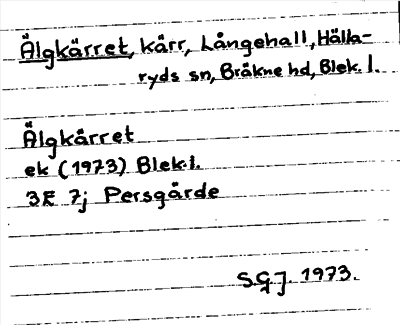 Älgkärret, kärr, Långehall, Hälla-
ryds sn, Bräkne hd, Blek. l.
Älgkärret
ek (1973) Blek.l.
3E 7j Persgärde
S.G.J. 1973.